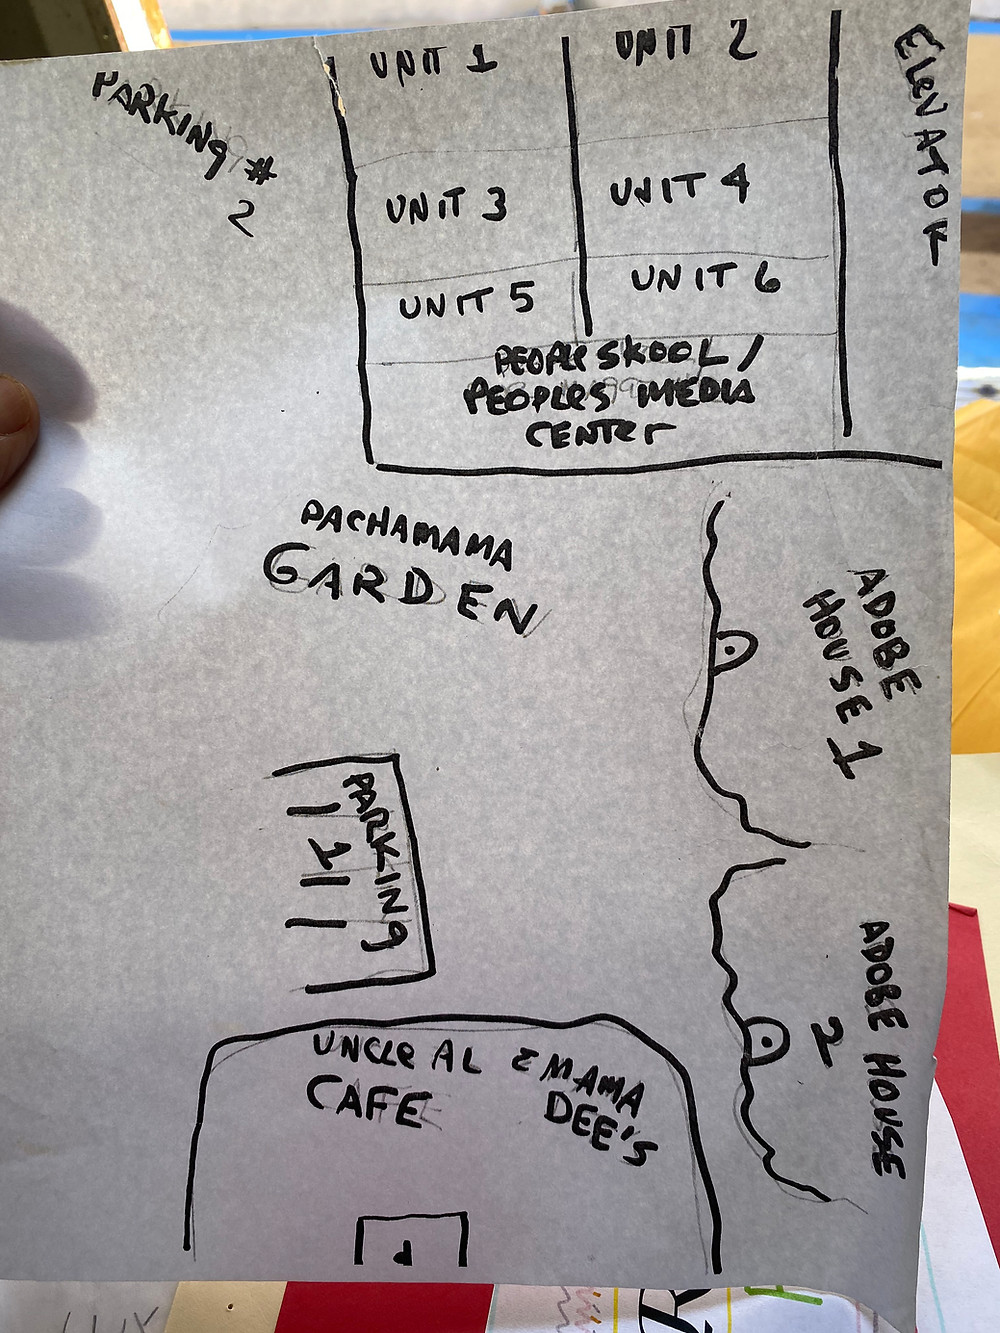 UNIT 1
UNIT 2
ELEVATOR
PARKING #
2
UNIT 3
UNIT 4
UNIT 5
UNIT 6
PEOPLESKOOL /
PEOPLES MEDIA
CENTER
PACHAMAMA
GARDEN
ADOBE
HOUSE 1
PARKING
1
ADOBE HOUSE
2
UNCLE AL & MAMA
DEE'S
CAFE